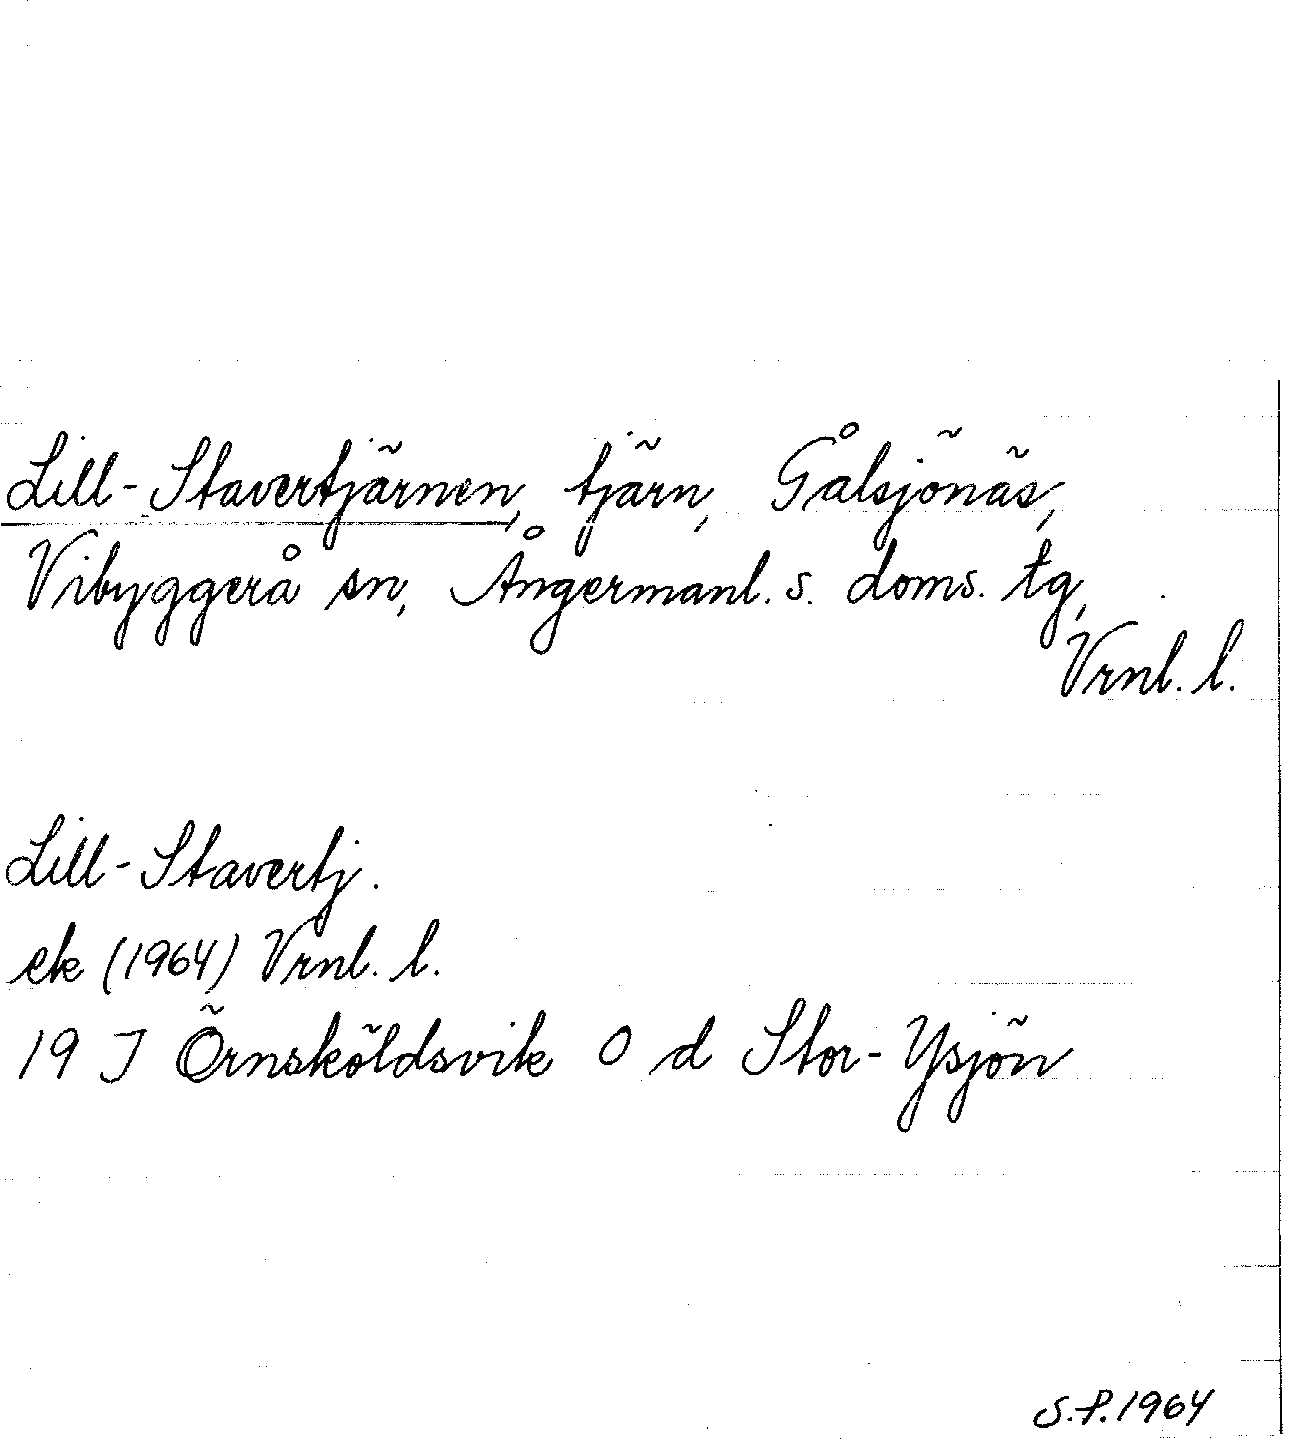 Lill-Stavertjärnen, tjärn, Gålsjönäs,
Vibyggerå sn, Ångermanl. s. doms. tg,
Vrnl. l.
Lill-Stavertj.
ek (1964) Vrnl. l.
19 J Örnsköldsvik O d Stor-Ysjön
S.P. 1964